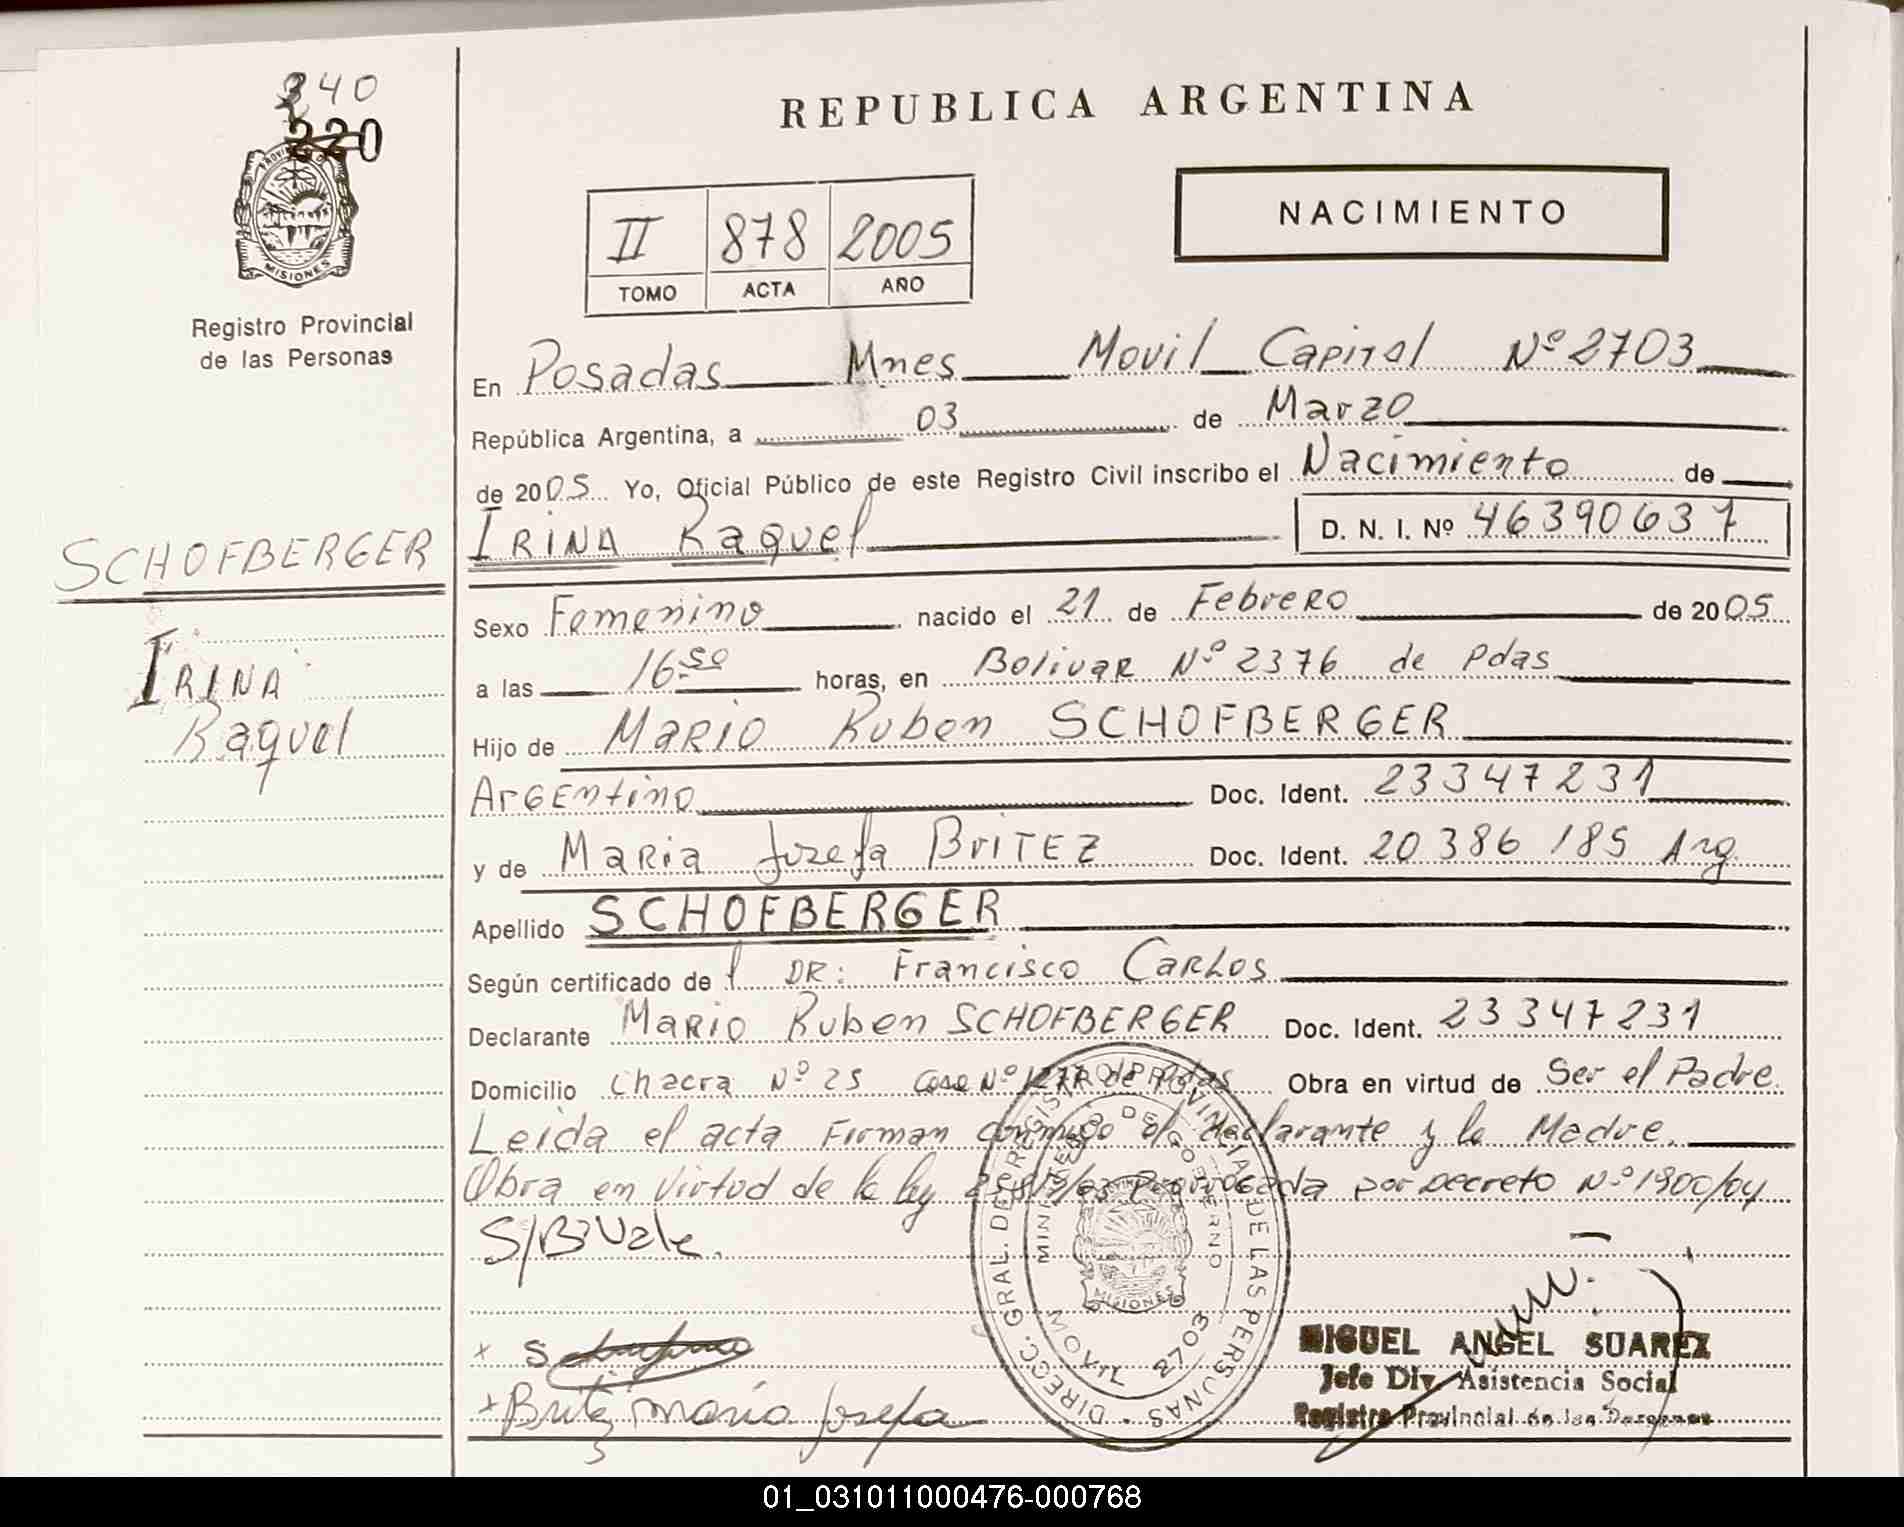 340
220
PROVINCIA DE
MISIONES
Registro Provincial
de las Personas
REPUBLICA ARGENTINA
NACIMIENTO
II 878 2005
TOMO ACTA AÑO
En Posadas Mnes Movil Capital Nº 2703
República Argentina, a 03 de Marzo
de 2005 Yo, Oficial Público de este Registro Civil inscribo el Nacimiento de
IRINA Raquel D. N. I. Nº 46390637
SCHOFBERGER
IRINA
Raquel
Sexo Femenino nacido el 21 de Febrero de 2005
a las 16 50 horas, en Bolivar Nº 2376 de Pdas
Hijo de Mario Ruben SCHOFBERGER
Argentino Doc. Ident. 23347231
y de Maria Jozefa BRITEZ Doc. Ident. 20386185 Arg.
Apellido SCHOFBERGER
Según certificado de l DR: Francisco Carlos
Declarante Mario Ruben SCHOFBERGER Doc. Ident. 23347231
Domicilio Chacra Nº 25 Casa Nº de Pdas Obra en virtud de Ser el Padre.
Leida el acta Firman conmigo el declarante y la Madre.
Obra en virtud de la ley por Decreto Nº 1900/04
S/B Vale.
DIRECC. GRAL. DE REGISTRO PROVINCIAL DE LAS PERSONAS
MINISTERIO DE GOBIERNO
MISIONES
MOVIL 2703
x
x Britez maria Josefa
MIGUEL ANGEL SUAREZ
Jefe Div. Asistencia Social
Registro Provincial de las Personas
01_031011000476-000768